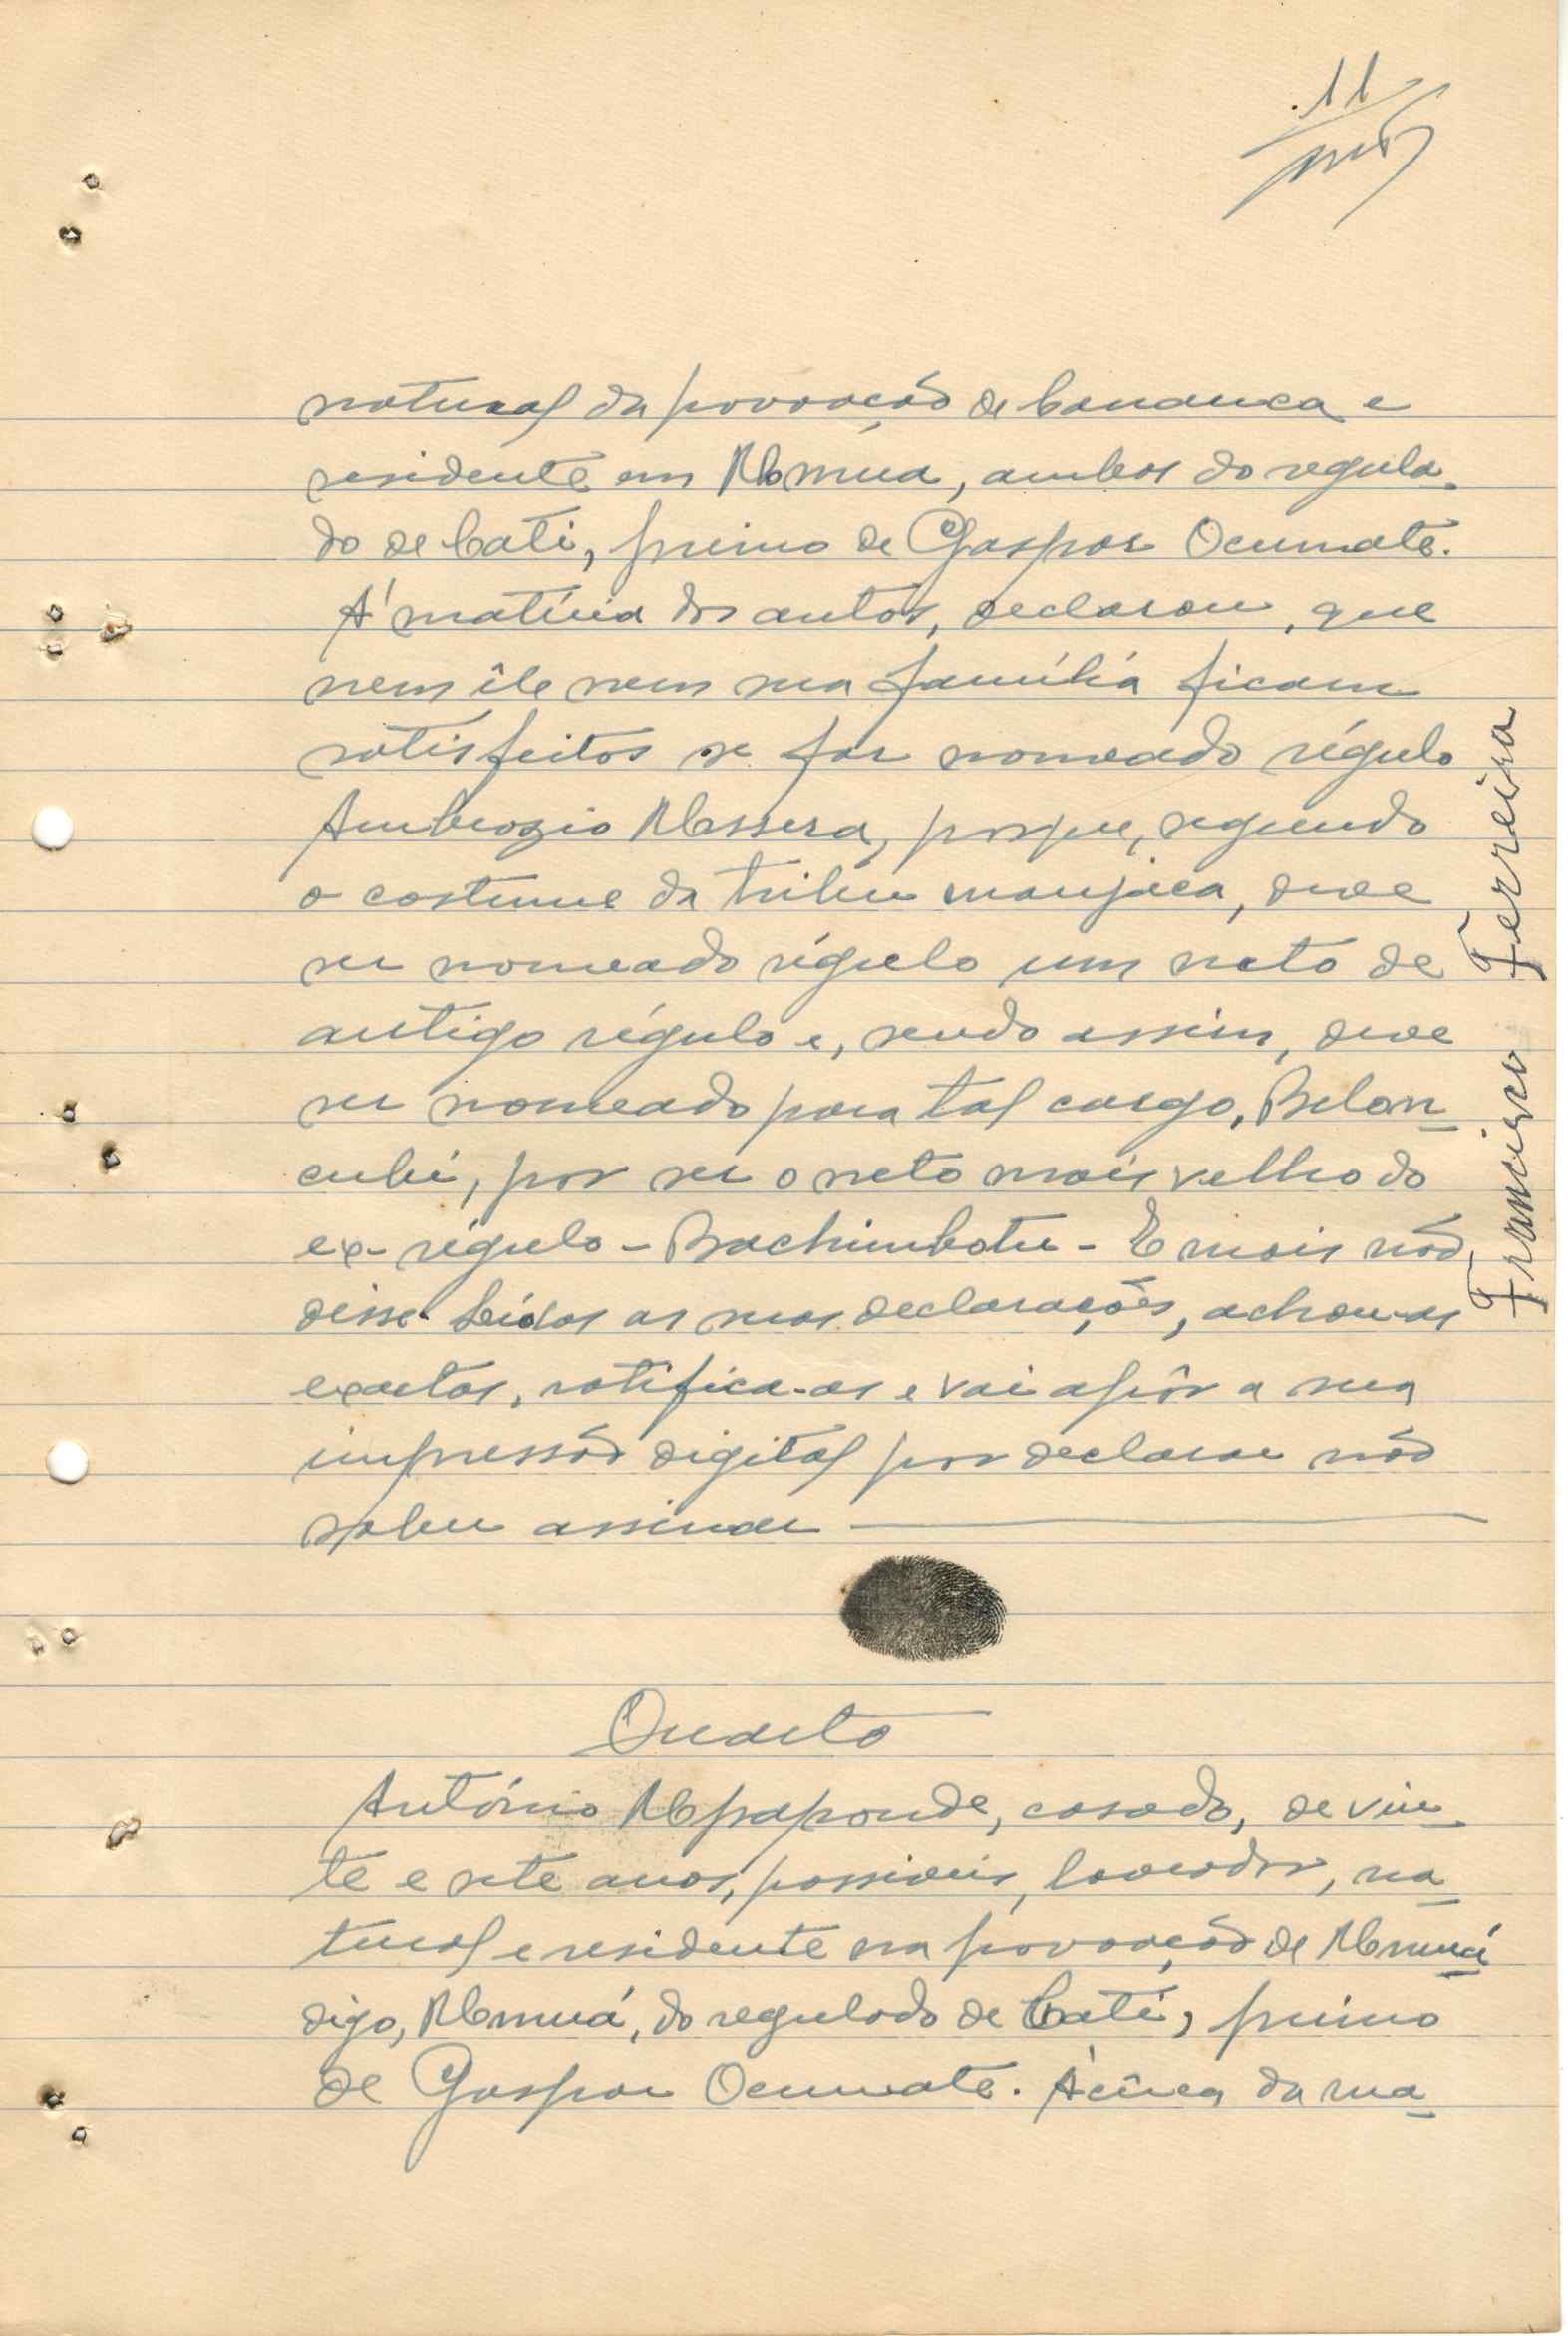 11
natural da povoação de Cananca e
residente em Memúa, ambos do regula-
do de Cati, primo de Gaspar Ocumate.
Á matéria dos autos, declarou, que
nem êle nem sua família ficam
satisfeitos se for nomeado régulo
Ambrozio Messera, porque, segundo
o costume da tribu manjaca, deve
ser nomeado régulo um neto de
antigo régulo e, sendo assim, deve
ser nomeado para tal cargo, Belan-
cubi, por ser o neto mais velho do
ex-régulo - Bachimbatu - E mais não
disse. Leídas as suas declarações, achou-as
exactas, ratifica-as e vai apôr a sua
impressão digital por declarar não
saber assinar
Francisco Ferreira
Quarto
António Mpaponde, casado, de vin-
te e sete anos, possiveis, lavrador, na-
tural e residente na povoação de Memuá
digo, Memuá, do regulado de Cati, primo
de Gaspar Ocumate. Àcêrca da ma-